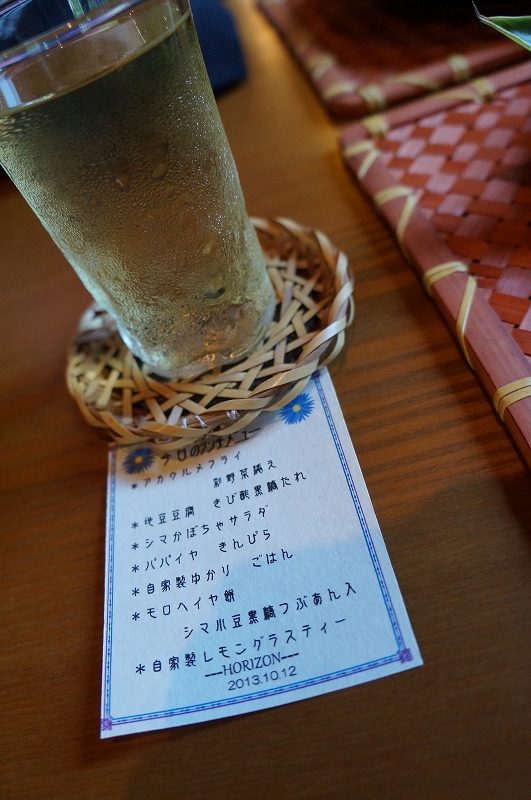 今日のランチメニュー
*アカウルメフライ
彩野菜添え
*地豆豆腐 きび酢黒糖たれ
*シマかぼちゃサラダ
*パパイヤ きんぴら
*自家製ゆかり ごはん
*モロヘイヤ餅
シマ小豆黒糖つぶあん入
*自家製レモングラスティー
---HORIZON---
2013.10.12